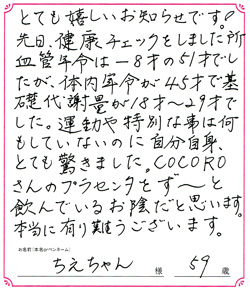 とても嬉しいお知らせです。
先日、健康チェックをしました所
血管年令は-8才の51才でし
たが、体内年令が45才で基
礎代謝量が18才～29才で
した。運動や特別な事は何
もしていないのに自分自身、
とても驚きました。COCORO
さんのプラセンタをず～っと
飲んでいるお陰だと思います。
本当に有り難うございます。
お名前(本名orペンネーム)
ちえちゃん 様 59 歳